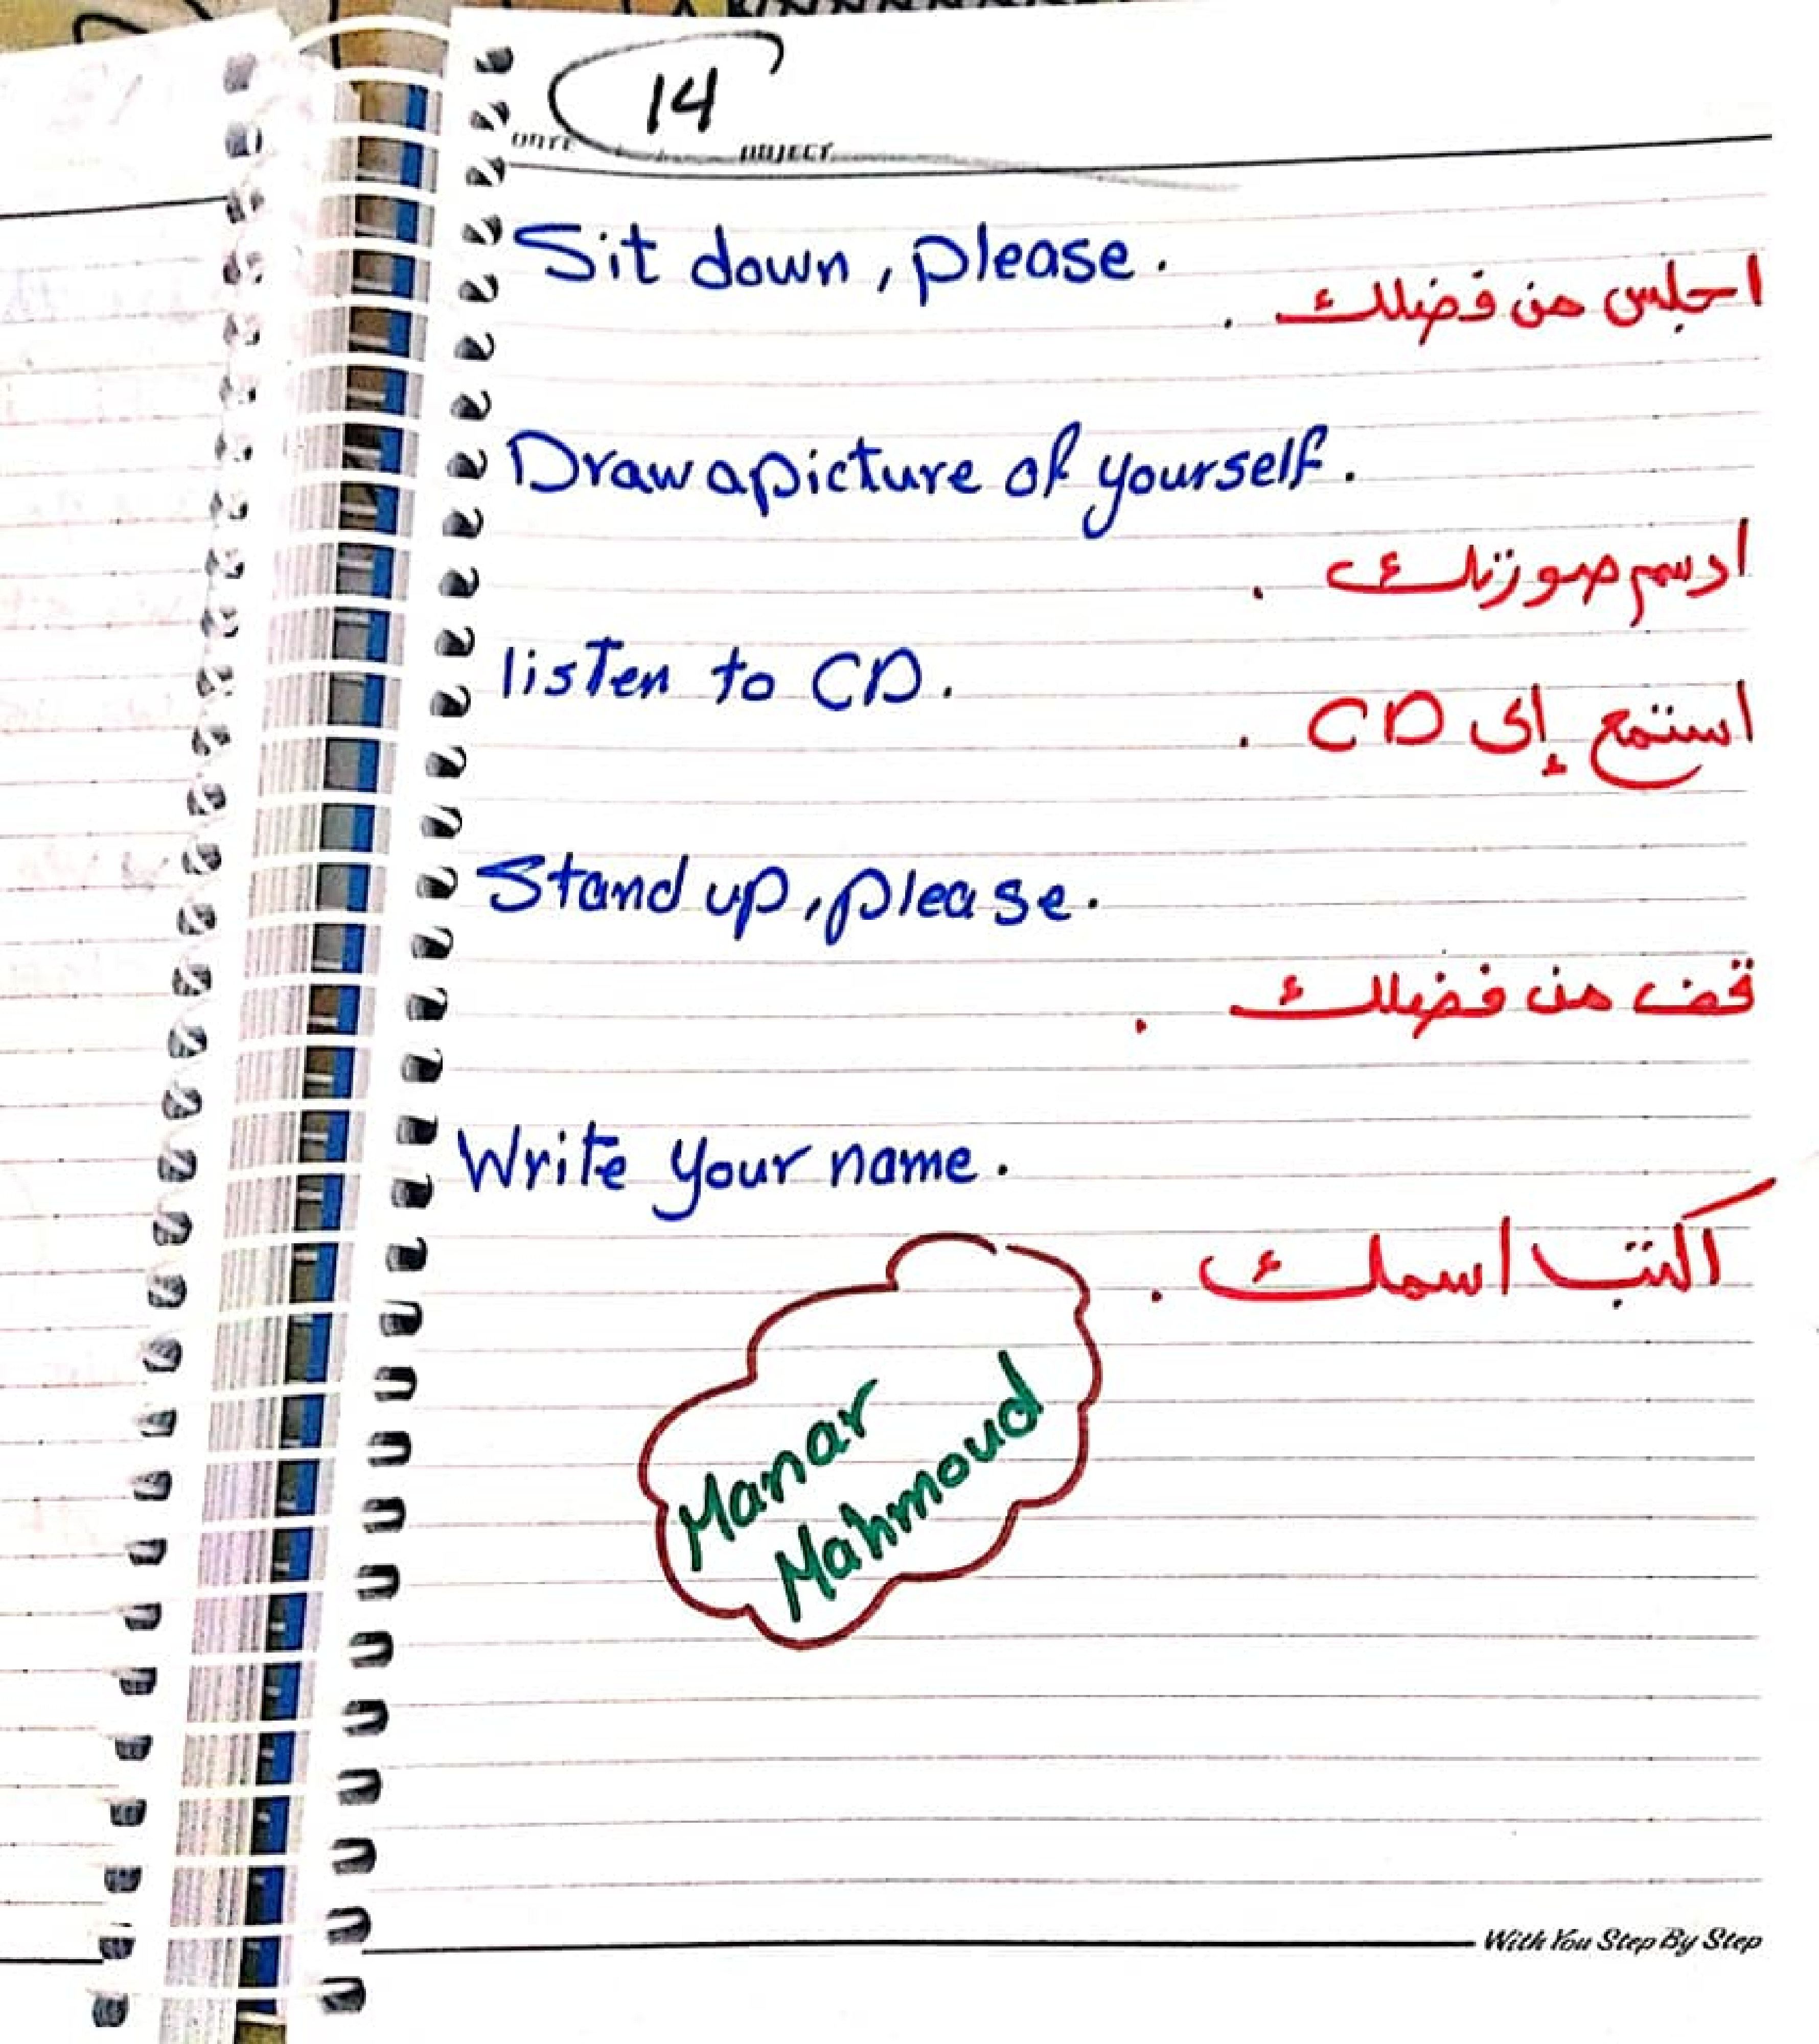 14
DATE OBJECT
Sit down, please.
اجلس من فضلك .
Draw a picture of yourself.
ارسم صورتك .
listen to CD.
استمع إلى CD .
Stand up, please.
قف من فضلك .
Write your name.
اكتب اسمك .
Manar
Mahmoud
With You Step By Step